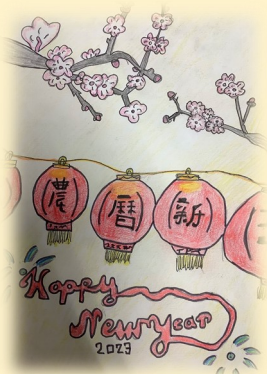 農曆新
Happy
New Year
2023